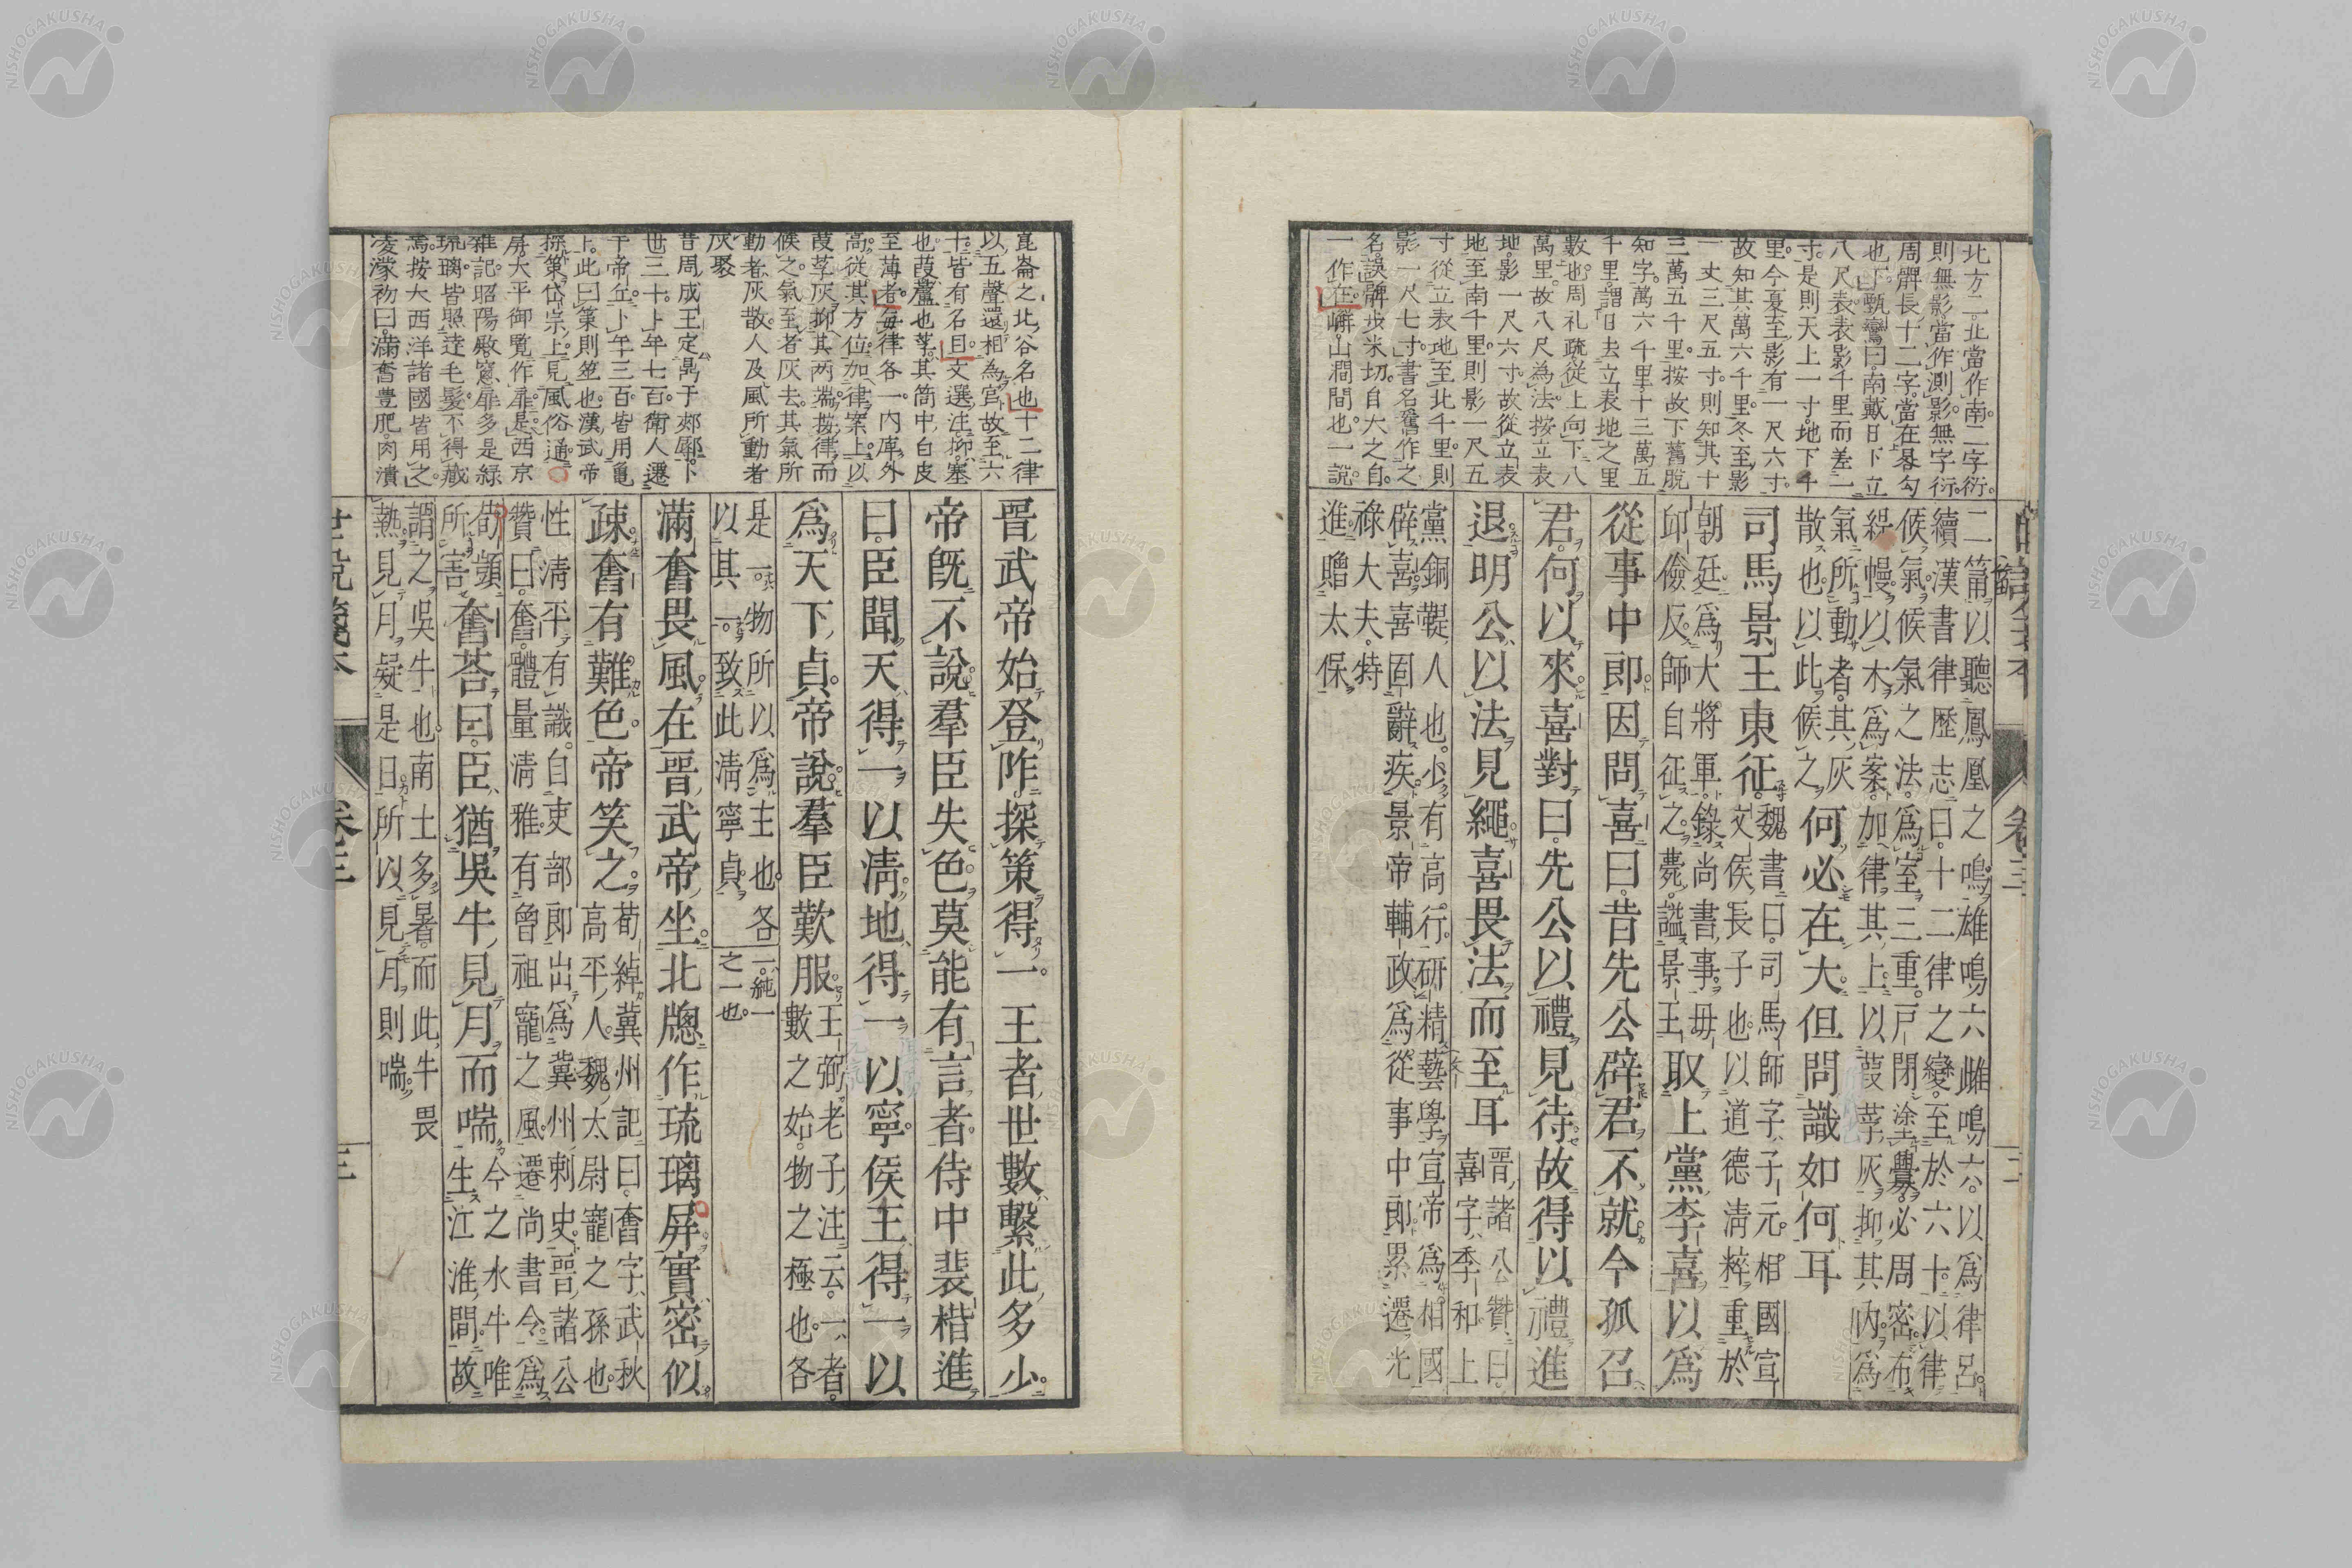 北方二北當作南二字衍
則無影當作測影無字衍
周髀長十二字當在晷勾
也下甄鸞曰南戴日下立
八尺表表影千里而差一
寸是則天上一寸地下千
里今夏至影有一尺六寸
故知其萬六千里冬至影
一丈三尺五寸則知其十
三萬五千里按故下舊脫
知字萬六千里十三萬五
千里謂日去立表地之里
數也周礼疏從上向下八
萬里故八尺為法按立表
地影一尺六寸故從立表
地至南千里則影一尺五
寸從立表地至北千里則
影一尺七寸書名舊作之
名誤髀步米切自大之自
一作在嶰山澗間也一說
二筩以聽鳳凰之鳴雄鳴六雌鳴六以爲律呂
續漢書律歷志曰十二律之變至於六十以律
候氣候氣之法爲室三重戸閉塗釁必周密布
緹幔以木爲案加律其上以葭莩灰抑其內爲
氣所動者其灰
散也以此候之何必在大但問識如何耳
司馬景王東征魏書曰司馬師字子元相國宣
文侯長子也以道德淸粹重於
朝廷爲大將軍錄尚書事毋
邱儉反師自征之薨謚景王取上黨李喜以爲
從事中郎因問喜曰昔先公辟君不就今孤召
君何以來喜對曰先公以禮見待故得以禮進
退明公以法見繩喜畏法而至耳晉諸公贊曰
喜字季和上
黨銅鞮人也少有高行研精藝學宣帝爲相國
辟喜喜固辭疾景帝輔政爲從事中郎累遷光
祿大夫特
進贈太保
卷三
二
崑崙之北谷名也十二律
以五聲還相為宮故至六
十皆有名目文選注抑塞
也葭蘆也莩其筩中白皮
至薄者每律各一內庳外
高從其方位加律案上以
葭莩灰抑其两端按律而
候之氣至者灰去其氣所
動者灰散人及風所動者
灰聚
昔周成王定鼎于郟鄏卜
世三十卜年七百衛人遷
于帝丘卜年三百皆用龜
卜此曰策則筮也漢武帝
探策岱宗上見風俗通
屏大平御覽作扉是西京
雜記昭陽殿窻扉多是綠
琉璃皆照逹毛髮不得藏
焉按大西洋諸國皆用之
凌濛初曰滿奮豊肥肉潰
晉武帝始登阼探策得一王者世數繫此多少
帝旣不說羣臣失色莫能有言者侍中裴楷進
曰臣聞天得一以淸地得一以寧侯王得一以
爲天下貞帝說羣臣歎服王弼老子注云一者
數之始物之極也各
是一物所以爲主也各
以其一致此淸寧貞
一純一
之一也
滿奮畏風在晉武帝坐北牕作琉璃屏實密似
疎奮有難色帝笑之荀綽冀州記曰奮字武秋
高平人魏太尉寵之孫也
性淸平有識自吏部郎出爲冀州刺史晉諸公
贊曰奮體量淸雅有曾祖寵之風遷尚書令爲
荀顗
所害奮荅曰臣猶吳牛見月而喘今之水牛唯
生江淮間故
謂之吳牛也南土多暑而此牛畏
熱見月疑是日所以見月則喘
世說箋本
卷三
三